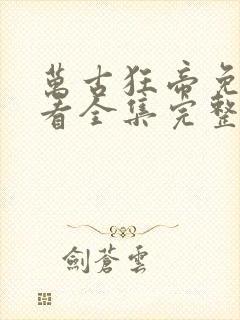 萬古狂帝免
看全集完整
劍蒼雲